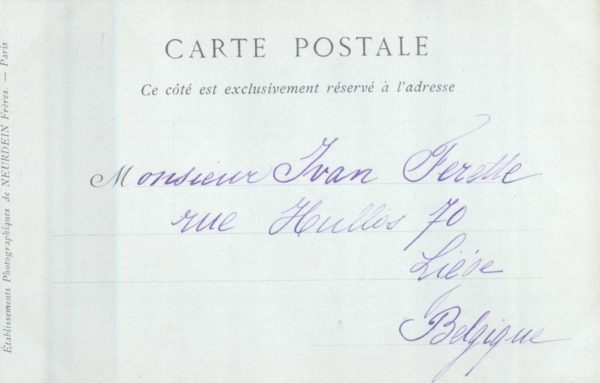 CARTE POSTALE
Ce côté est exclusivement réservé à l'adresse
Monsieur Ivan Ferette
rue Hullos 70
Liége
Belgique
Établissements Photographiques de NEURDEIN Frères. — Paris